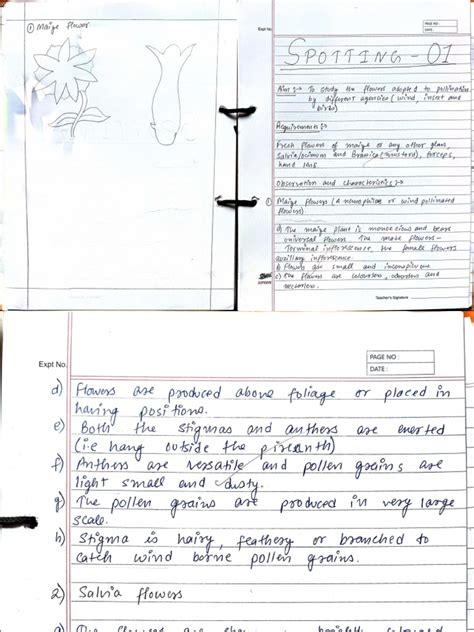 ① Maize flower
PAGE NO :
DATE :
Expt No.
SPOTTING - 01
Aim :- To study the flowers adapted to pollination
by different agencies (wind, insect and
birds)
Requirements :-
Fresh flowers of maize or any other glass,
Salvia/ocimum and Brassica (mustard), forceps,
hand lens.
Observation and characteristics :-
① Maize flowers (Anemophilos or wind pollinated
flowers)
a) The maize plant is monoecious and bears
universal flowers. The male flowers -
Terminal inflorescence, the female flowers
auxillary inflorescence.
b) Flowers are small and inconspicuous
c) The flowers are colourless, odourless and
nectarless.
Teacher's Signature
PAGE NO :
DATE :
Expt No.
d) Flowers are produced above foliage or placed in
having positions.
e) Both the stigmas and anthers are exerted
(i.e hang outside the
f) Anthers are versatile and pollen grains are
light small and dusty.
g) The pollen grains are produced in very large
scale.
h) Stigma is hairy, feathery or branched to
catch wind borne pollen grains.
2) Salvia flowers